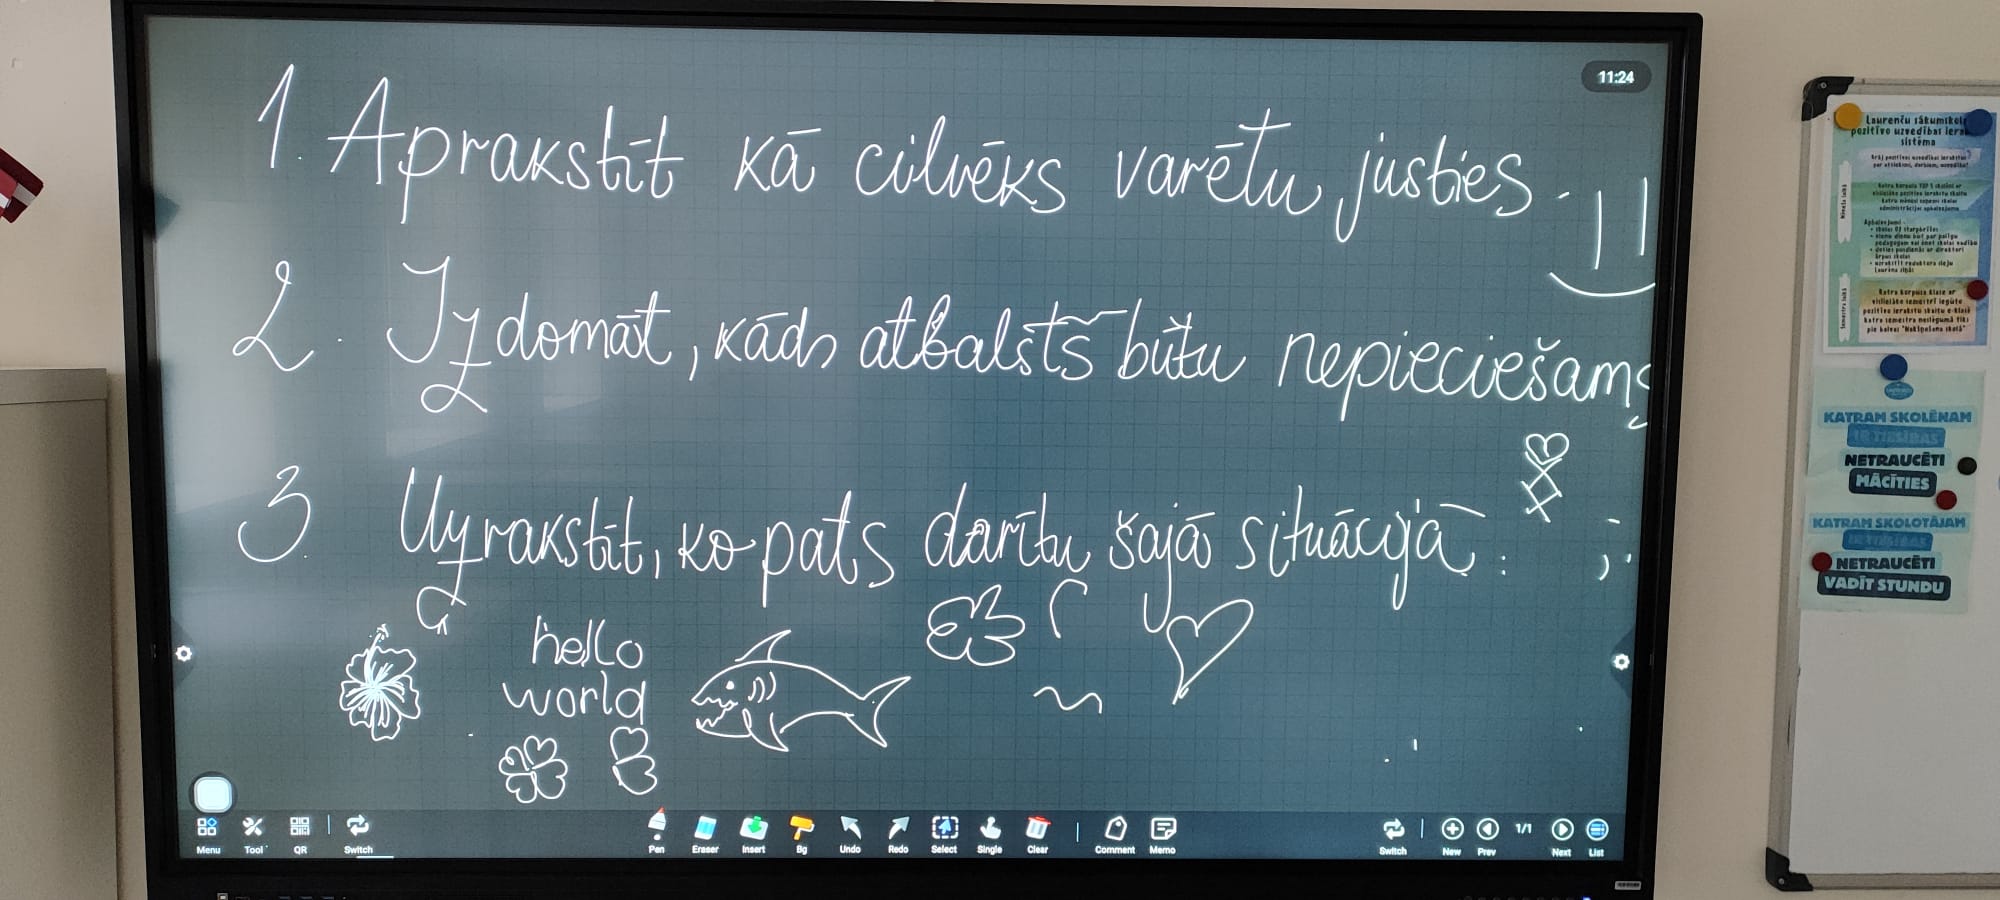 11:24
1. Aprakstīt kā cilvēks varētu justies.
2. Izdomāt, kāds atbalsts būtu nepieciešams
3. Uzrakstīt, ko pats darītu šajā situācijā.
hello
world
Menu Tool QR Switch Pen Eraser Insert Bg Undo Redo Select Single Clear Comment Memo Switch New Prev 1/1 Next List
Laurenču sākumskol
pozitīvo uzvedības iera
sistēma
KATRAM SKOLĒNAM
IR TIESĪBAS
NETRAUCĒTI
MĀCĪTIES
KATRAM SKOLOTĀJAM
IR TIESĪBAS
NETRAUCĒTI
VADĪT STUNDU